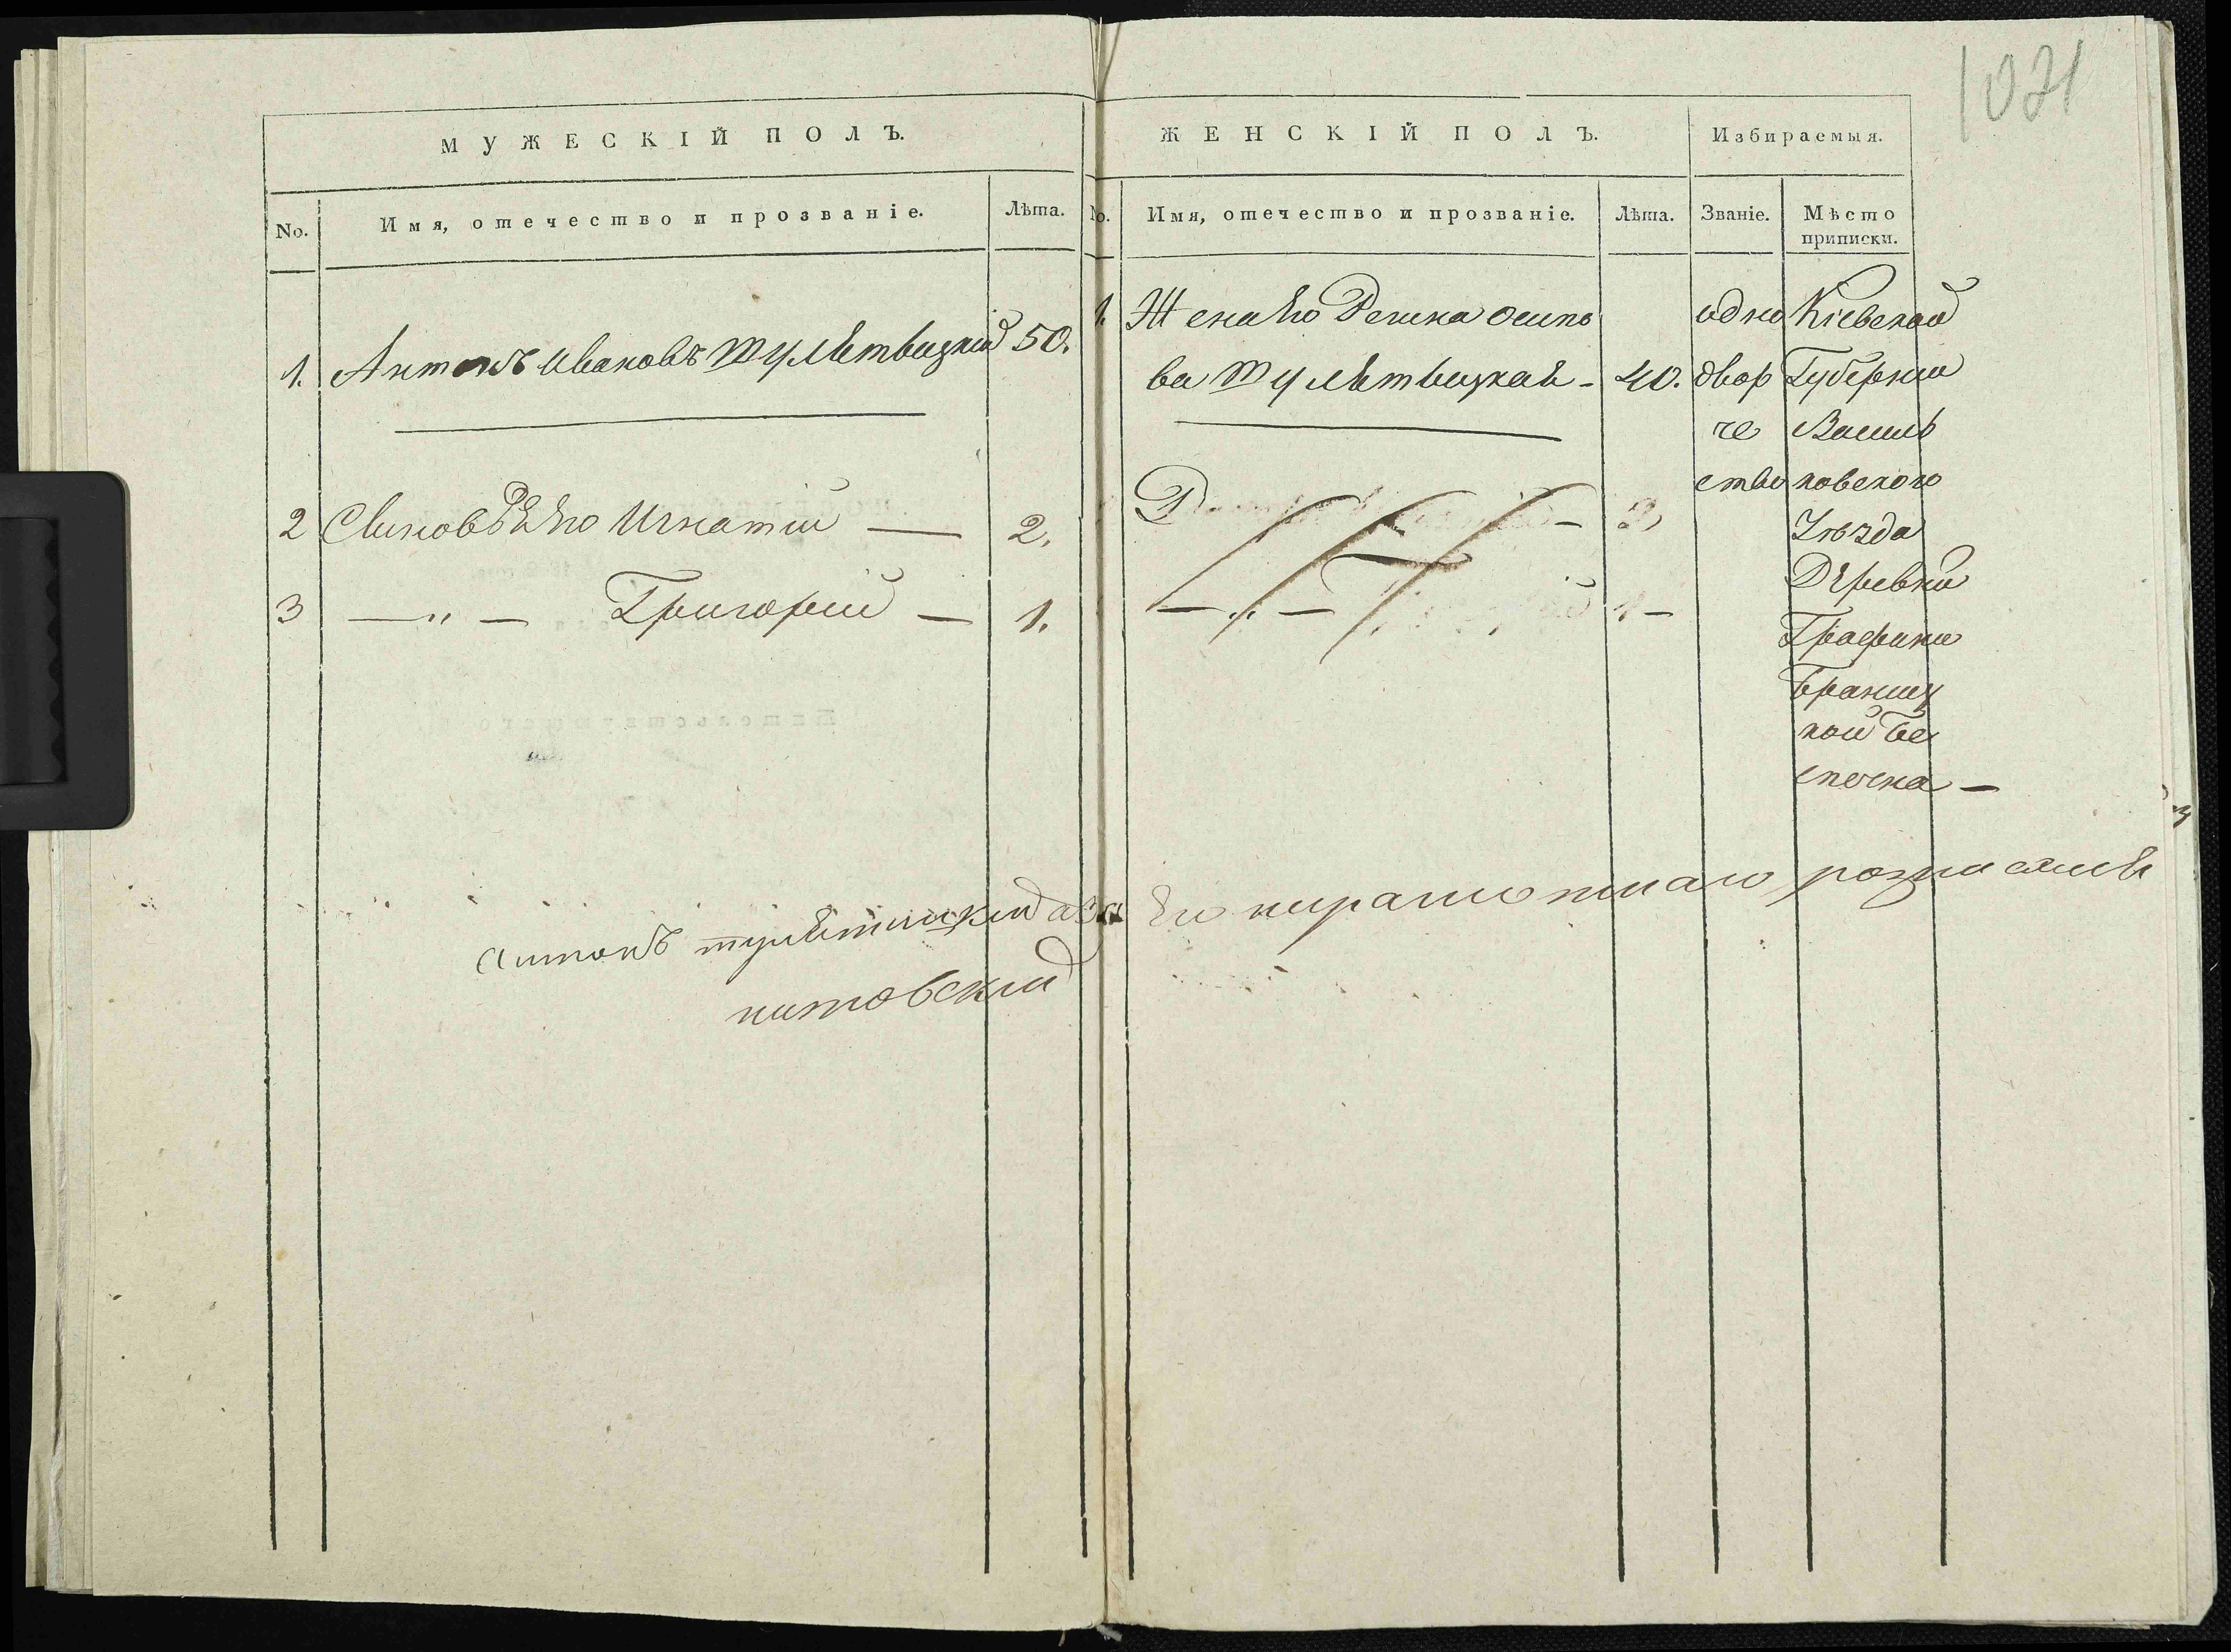 1021
МУЖЕСКІЙ ПОЛЪ.
No. Имя, отечество и прозваніе. Лѣта.
1. Антонъ Ивановъ Тулѣтвицкій 50.
2 Сыновья Его Игнатій — 2.
3 — „ — Григорій — 1.
ЖЕНСКІЙ ПОЛЪ. Избираемыя.
No. Имя, отечество и прозваніе. Лѣта. Званіе. Мѣсто
приписки.
1. Жена Его Осипо
ва Тулѣтвицкая - 40.
— „ — 1 —
одно
двор
че
ство
Кіевской
Губерніи
Василь
ковского
Уѣзда
Деревни
Графини
Браниц
кой
Антонъ тулѣтвицкий а за Его неграмотнаго